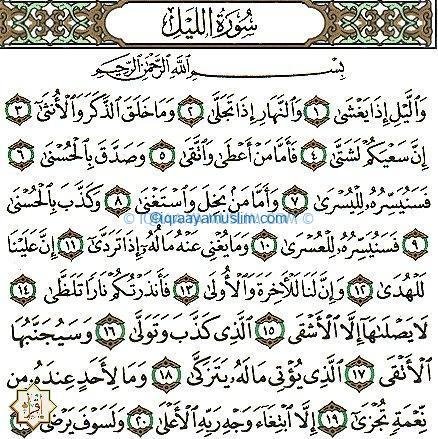 سُورَةُ اللَّيْلِ
بِسْمِ اللَّهِ الرَّحْمَٰنِ الرَّحِيمِ
وَالَّيْلِ إِذَا يَغْشَىٰ ١ وَالنَّهَارِ إِذَا تَجَلَّىٰ ٢ وَمَا خَلَقَ الذَّكَرَ وَالْأُنثَىٰ ٣
إِنَّ سَعْيَكُمْ لَشَتَّىٰ ٤ فَأَمَّا مَنْ أَعْطَىٰ وَاتَّقَىٰ ٥ وَصَدَّقَ بِالْحُسْنَىٰ ٦
فَسَنُيَسِّرُهُ لِلْيُسْرَىٰ ٧ وَأَمَّا مَنْ بَخِلَ وَاسْتَغْنَىٰ ٨ وَكَذَّبَ بِالْحُسْنَىٰ
© iqraayamuslim.com ©
٩ فَسَنُيَسِّرُهُ لِلْعُسْرَىٰ ١٠ وَمَا يُغْنِي عَنْهُ مَالُهُ إِذَا تَرَدَّىٰ ١١ إِنَّ عَلَيْنَا
لَلْهُدَىٰ ١٢ وَإِنَّ لَنَا لَلْآخِرَةَ وَالْأُولَىٰ ١٣ فَأَنذَرْتُكُمْ نَارًا تَلَظَّىٰ ١٤
لَا يَصْلَاهَا إِلَّا الْأَشْقَى ١٥ الَّذِي كَذَّبَ وَتَوَلَّىٰ ١٦ وَسَيُجَنَّبُهَا
الْأَتْقَى ١٧ الَّذِي يُؤْتِي مَالَهُ يَتَزَكَّىٰ ١٨ وَمَا لِأَحَدٍ عِندَهُ مِن
نِّعْمَةٍ تُجْزَىٰ ١٩ إِلَّا ابْتِغَاءَ وَجْهِ رَبِّهِ الْأَعْلَىٰ ٢٠ وَلَسَوْفَ يَرْضَىٰ